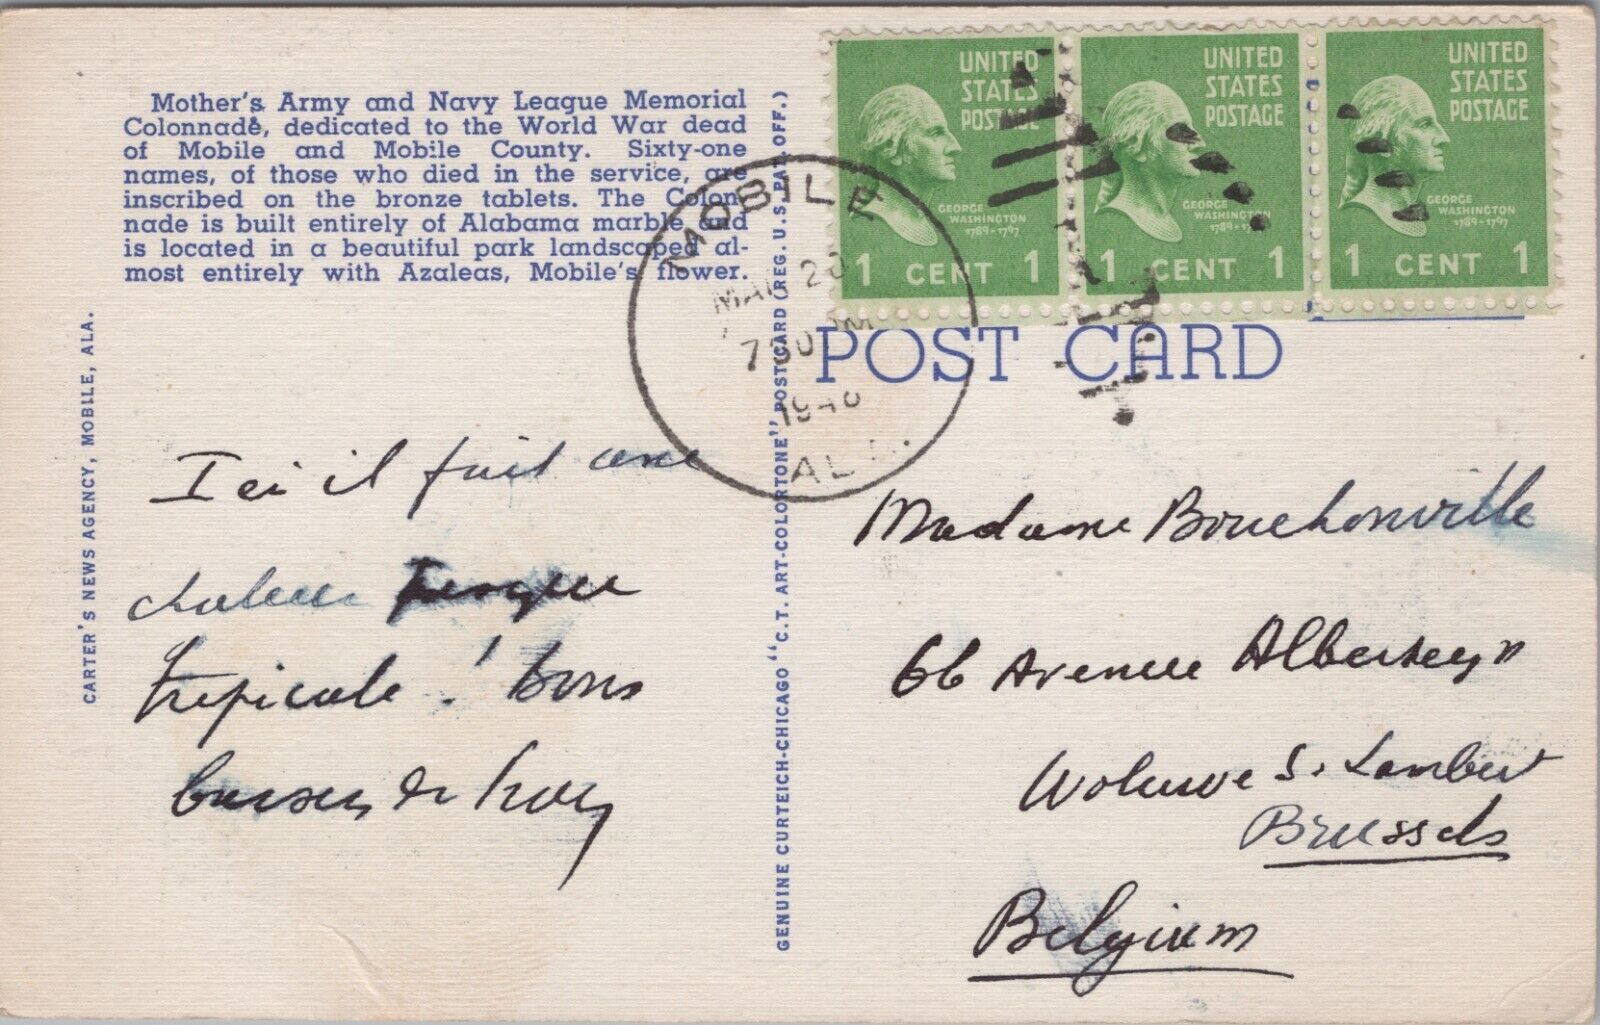 Mother's Army and Navy League Memorial
Colonnade, dedicated to the World War dead
of Mobile and Mobile County. Sixty-one
names, of those who died in the service, are
inscribed on the bronze tablets. The Colon-
nade is built entirely of Alabama marble and
is located in a beautiful park landscaped al-
most entirely with Azaleas, Mobile's flower.
CARTER'S NEWS AGENCY, MOBILE, ALA.
Ici il fait une
chaleur presque
tropicale! bons
baisers de
GENUINE CURTEICH-CHICAGO "C.T. ART-COLORTONE" POSTCARD (REG. U.S. PAT. OFF.)
UNITED
STATES
POSTAGE
GEORGE
WASHINGTON
1789-1797
1 CENT 1
UNITED
STATES
POSTAGE
GEORGE
WASHINGTON
1789-1797
1 CENT 1
UNITED
STATES
POSTAGE
GEORGE
WASHINGTON
1789-1797
1 CENT 1
MOBILE
20
7 30 PM
194
ALA.
POST CARD
Madame Bouchonville
66 Avenue Alberteyn
Woluwe S. Lambert
Brussels
Belgium